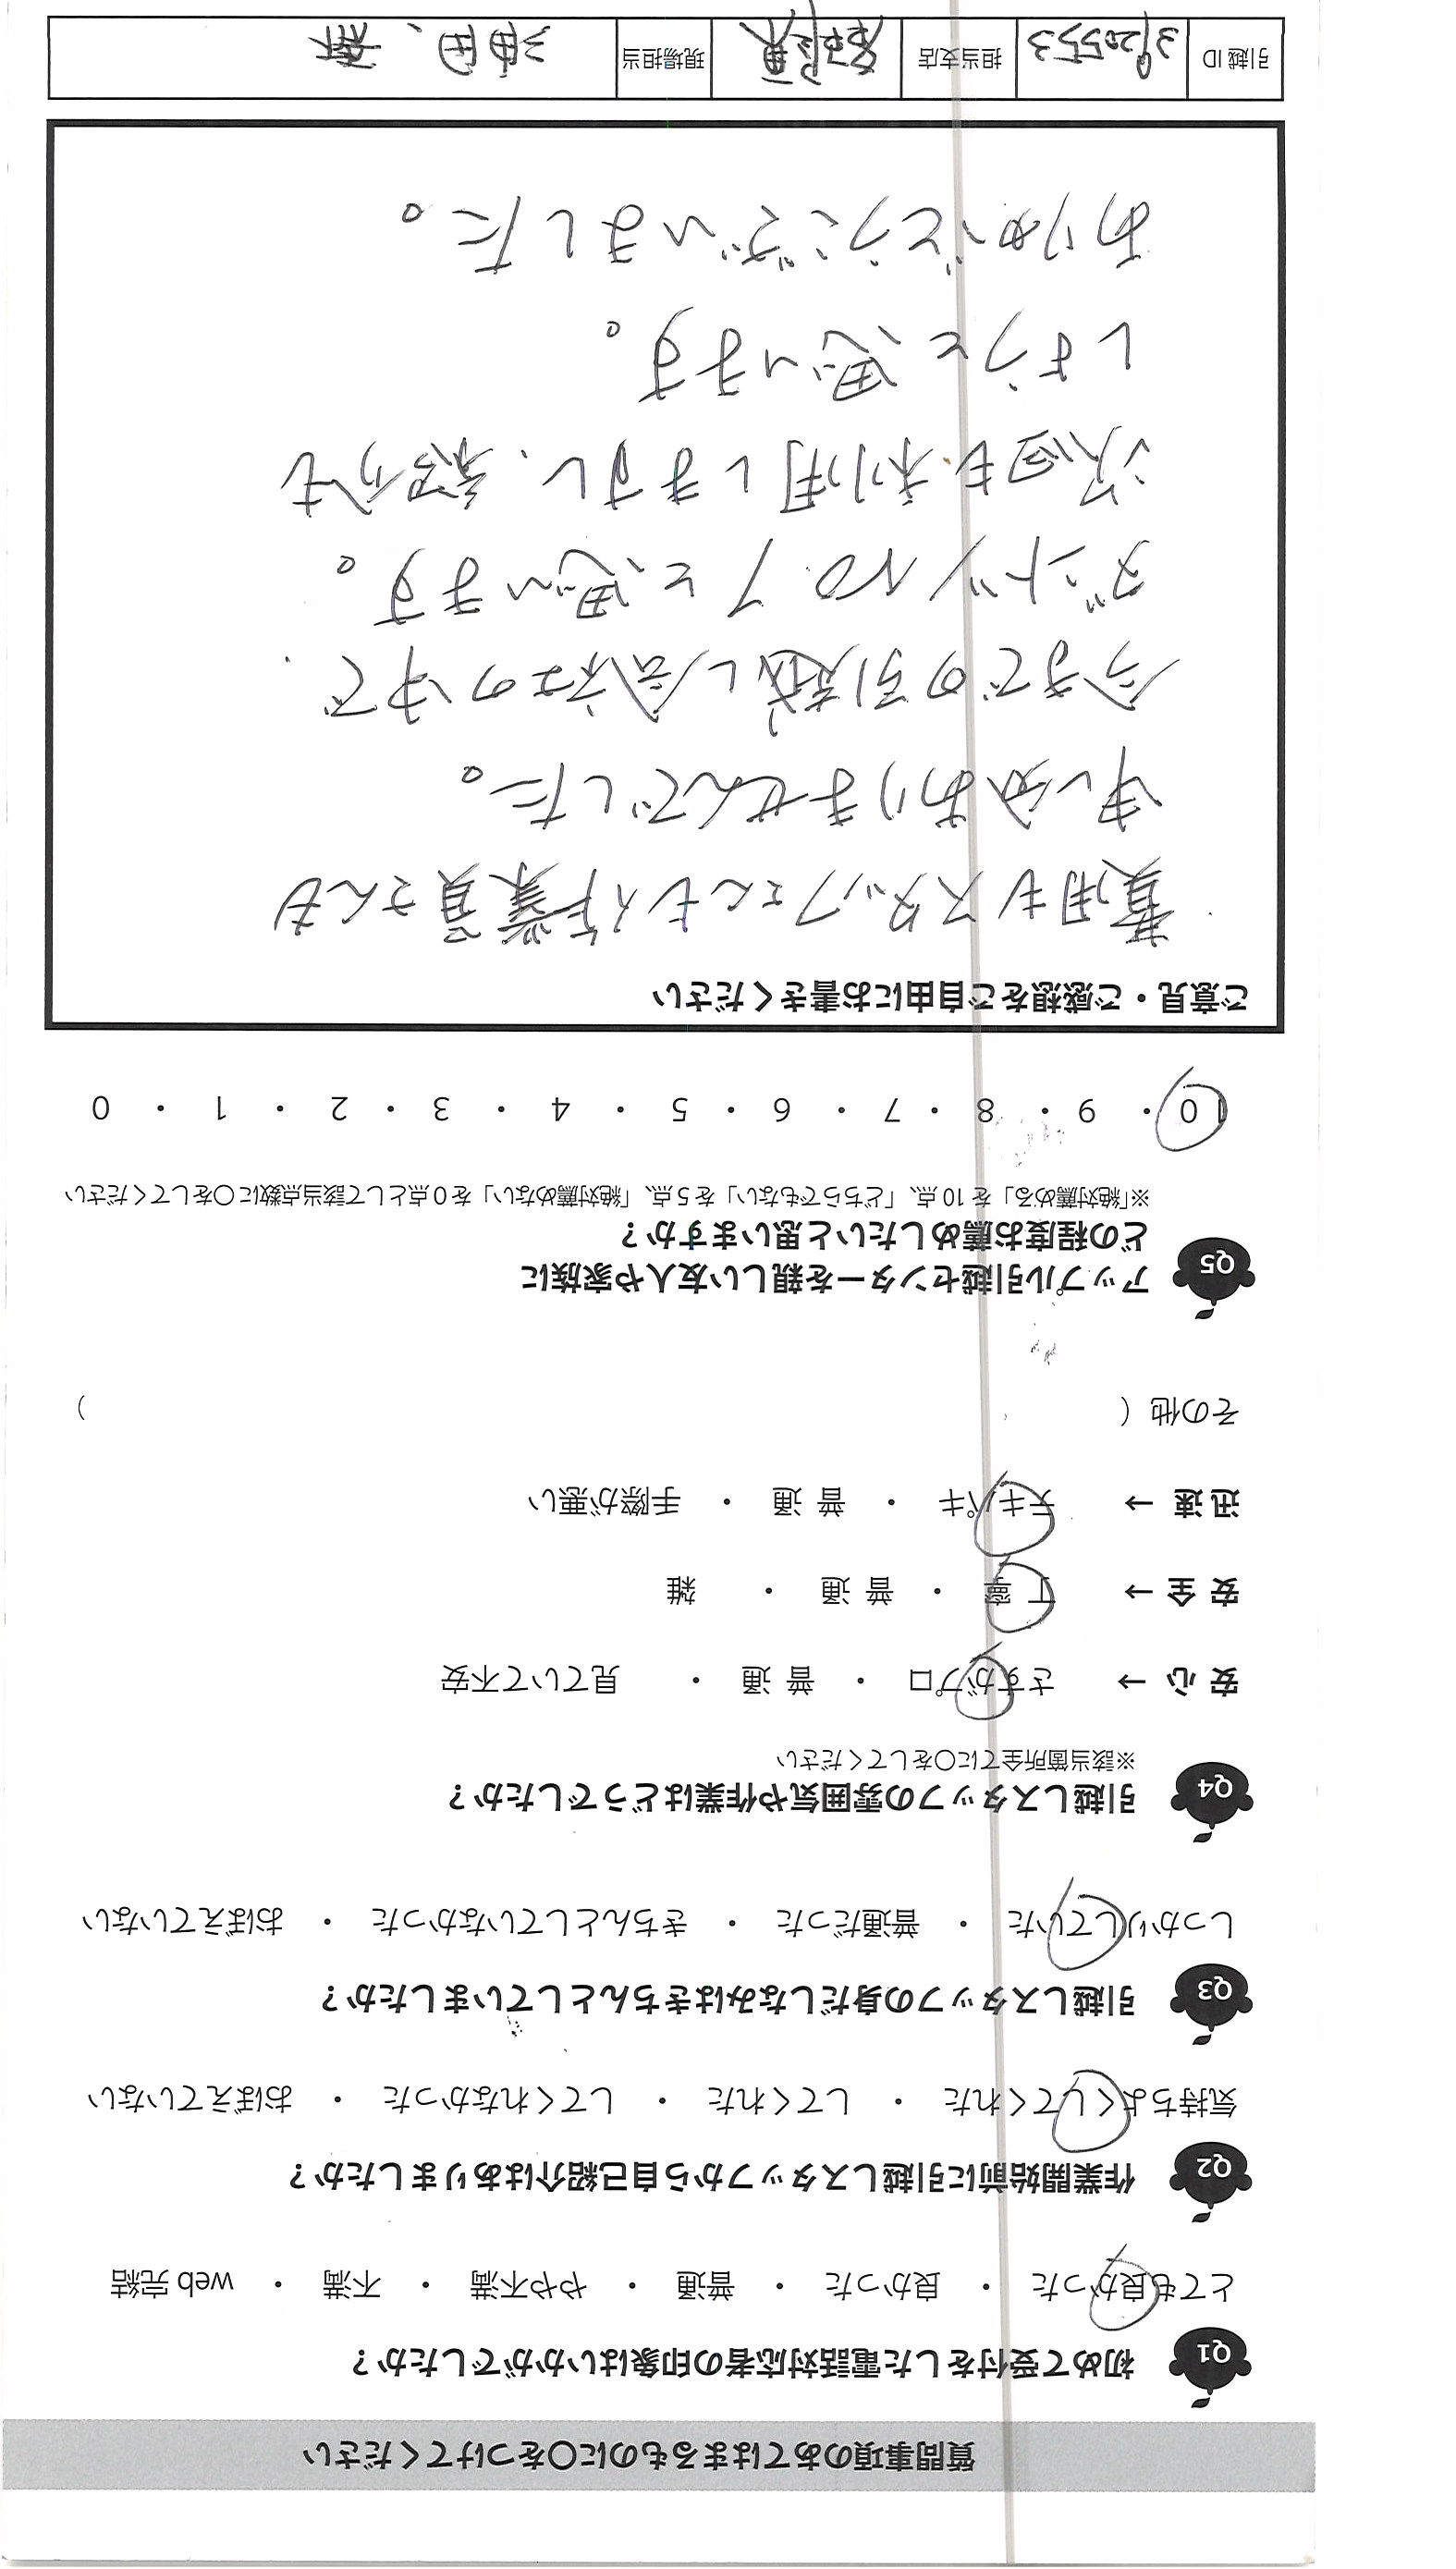 質問事項のあてはまるものに〇をつけてください
Q1 初めて受付をした電話対応者の印象はいかがでしたか？
とても良かった ・ 良かった ・ 普通 ・ やや不満 ・ 不満 ・ web 完結
Q2 作業開始前に引越しスタッフから自己紹介はありましたか？
気持ちよくしてくれた ・ してくれた ・ してくれなかった ・ おぼえていない
Q3 引越しスタッフの身だしなみはきちんとしていましたか？
しっかりしていた ・ 普通だった ・ きちんとしていなかった ・ おぼえていない
Q4 引越しスタッフの雰囲気や作業はどうでしたか？
※該当箇所全てに〇をしてください
安 心 → さすがプロ ・ 普 通 ・ 見ていて不安
安 全 → 丁 寧 ・ 普 通 ・ 雑
迅 速 → テキパキ ・ 普 通 ・ 手際が悪い
その他（ ）
Q5 アップル引越センターを親しい友人や家族に
どの程度お薦めしたいと思いますか？
※「絶対薦める」を 10 点、「どちらでもない」を 5 点、「絶対薦めない」を 0 点として該当点数に〇をしてください
10 ・ 9 ・ 8 ・ 7 ・ 6 ・ 5 ・ 4 ・ 3 ・ 2 ・ 1 ・ 0
ご意見・ご感想をご自由にお書きください
費用もスタッフさんも作業員さんも
申し分ありませんでした。
今までの引越し会社の中で
ダントツ NO.1と思います。
次回も利用しますし、紹介も
しようと思います。
ありがとうございました。
引越 ID 3920553 担当支店 現場担当